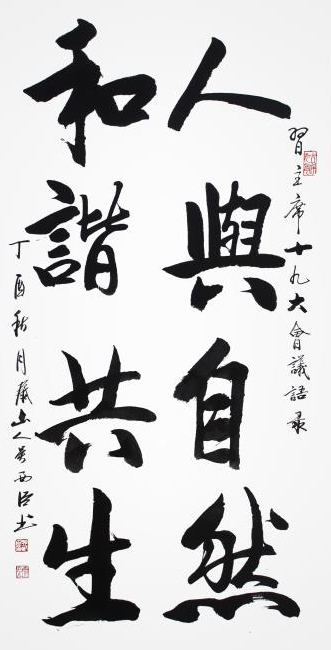 習主席十九大會議語录
人與自然
和諧共生
丁酉秋月山人吳西臣书